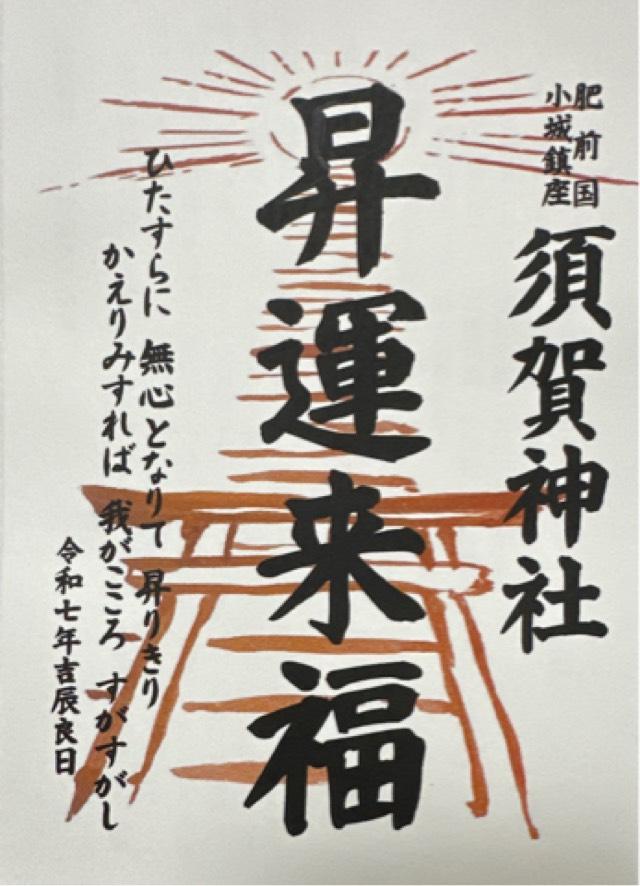 肥前国
小城鎮座
須賀神社
昇運来福
ひたすらに 無心となりて 昇りきり
かえりみすれば 我がこころ すがすがし
令和七年吉辰良日